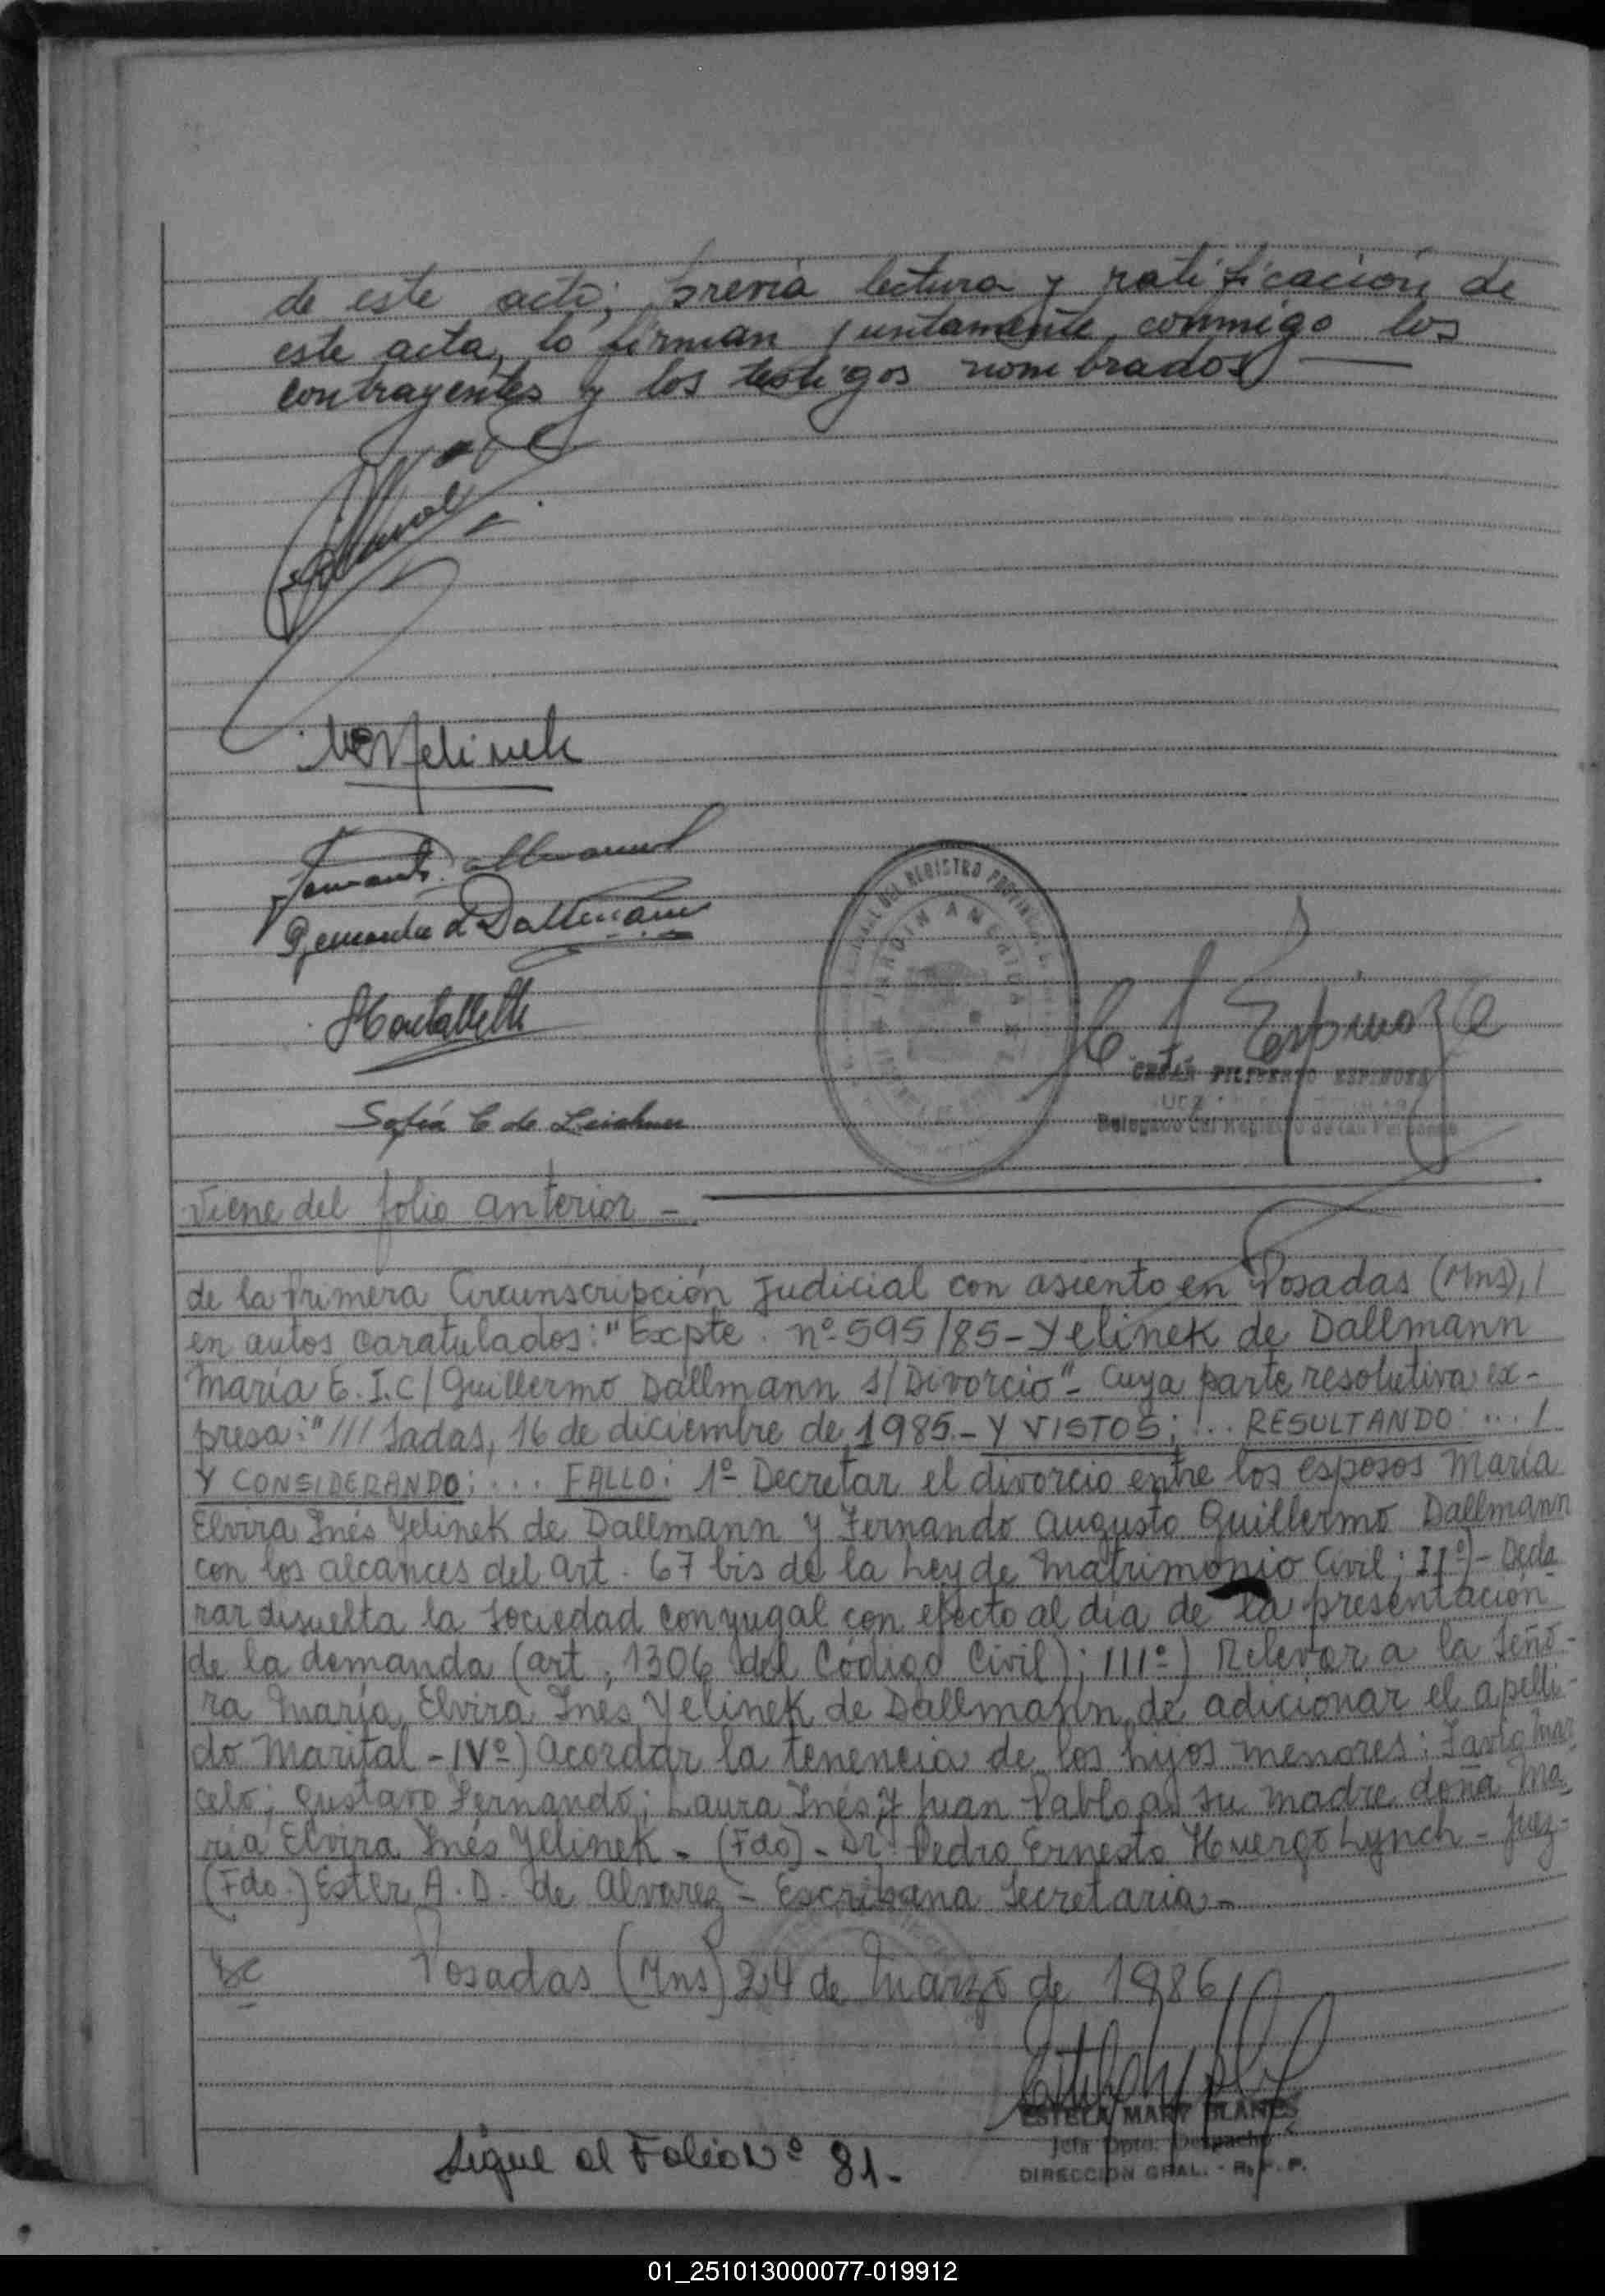 de este acto; previa lectura y ratificación de
este acta, lo firman juntamente conmigo los
contrayentes y los testigos nombrados
M Yelinek
Fernando Dallmann
de Dallmann
Sofía C de
REGISTRO PROVINCIAL
JARDIN AMERICA
Espinoza
CESAR FILIBERTO ESPINOZA
Delegado del Registro de las Personas
Viene del folio anterior -
de la Primera Circunscripción Judicial con asiento en Posadas (Mns), /
en autos caratulados: "Expte. nº 595/85 - Yelinek de Dallmann
María E. I. C/ Guillermo Dallmann S/ Divorcio" - Cuya parte resolutiva ex-
presa: "/// sadas, 16 de diciembre de 1985.- Y VISTOS; ... RESULTANDO: ... /
Y CONSIDERANDO: ... FALLO: 1º Decretar el divorcio entre los esposos María
Elvira Inés Yelinek de Dallmann y Fernando Augusto Guillermo Dallmann
con los alcances del art. 67 bis de la Ley de Matrimonio Civil; IIº)- Decla
rar disuelta la sociedad conyugal con efecto al día de la presentación
de la demanda (art. 1306 del Código Civil); IIIº) Relevar a la Seño-
ra María Elvira Inés Yelinek de Dallmann de adicionar el apelli-
do Marital - IVº) Acordar la tenencia de los hijos menores: Favio Mar
celo; Gustavo Fernando; Laura Inés y Juan Pablo a su madre doña Ma-
ría Elvira Inés Yelinek - (Fdo) - Dr. Pedro Ernesto Huergo Lynch - Juez-
(Fdo.) Ester A. D. de Alvarez - Escribana Secretaria -
Posadas (Mns) 24 de Marzo de 1986
ESTELA MARY BLANES
Jefa Dpto. Despacho
DIRECCION GRAL. - R. P. P.
Sigue al Folio Nº 81-
01_251013000077-019912